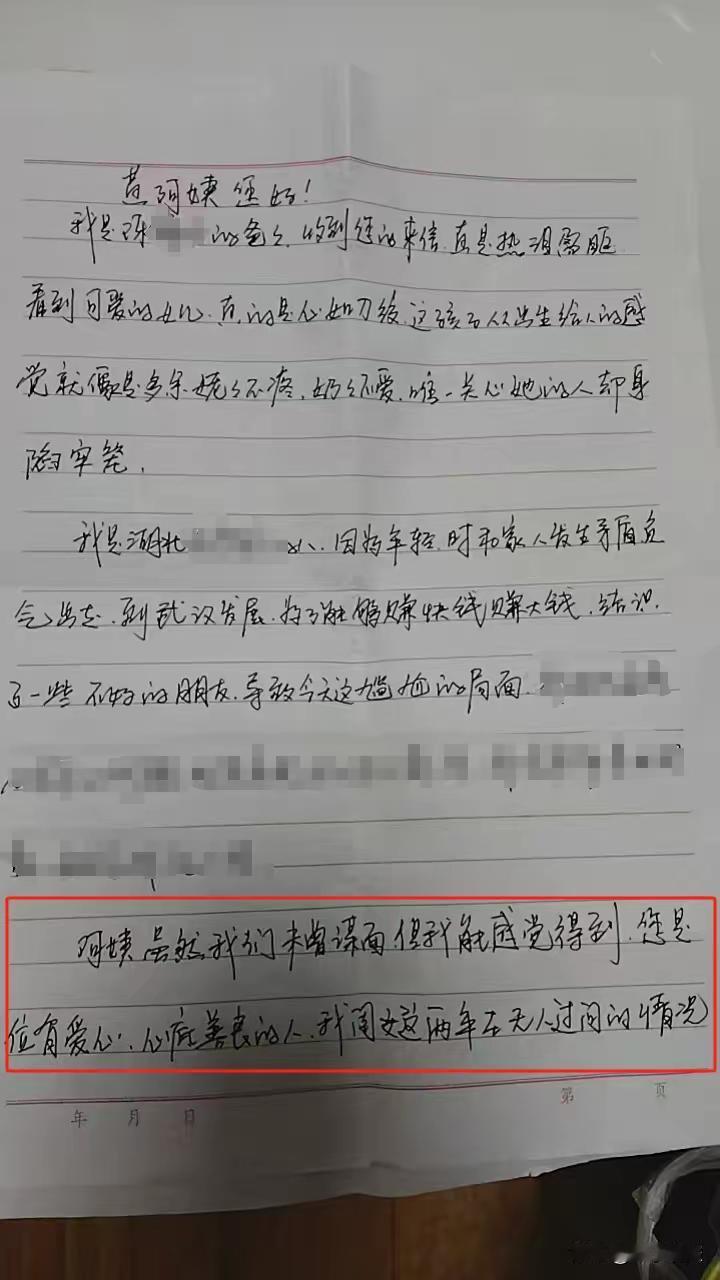 黄阿姨您好！
我是陈的爸爸，收到您的来信，真是热泪盈眶
看到可爱的女儿，真的是心如刀绞，这孩子从出生给人的感
觉就像是多余，姥姥不疼，奶奶不爱，唯一关心她的人却身
陷牢笼，
我是湖北人，因为年轻时和家人发生矛盾负
气出走，到武汉发展，为了能够赚快钱赚大钱，结识
了一些不好的朋友，导致今天这尴尬的局面，
阿姨虽然我们未曾谋面但我能感觉得到，您是
位有爱心，心底善良的人，我闺女这两年在无人过问的情况
年 月 日
第 页